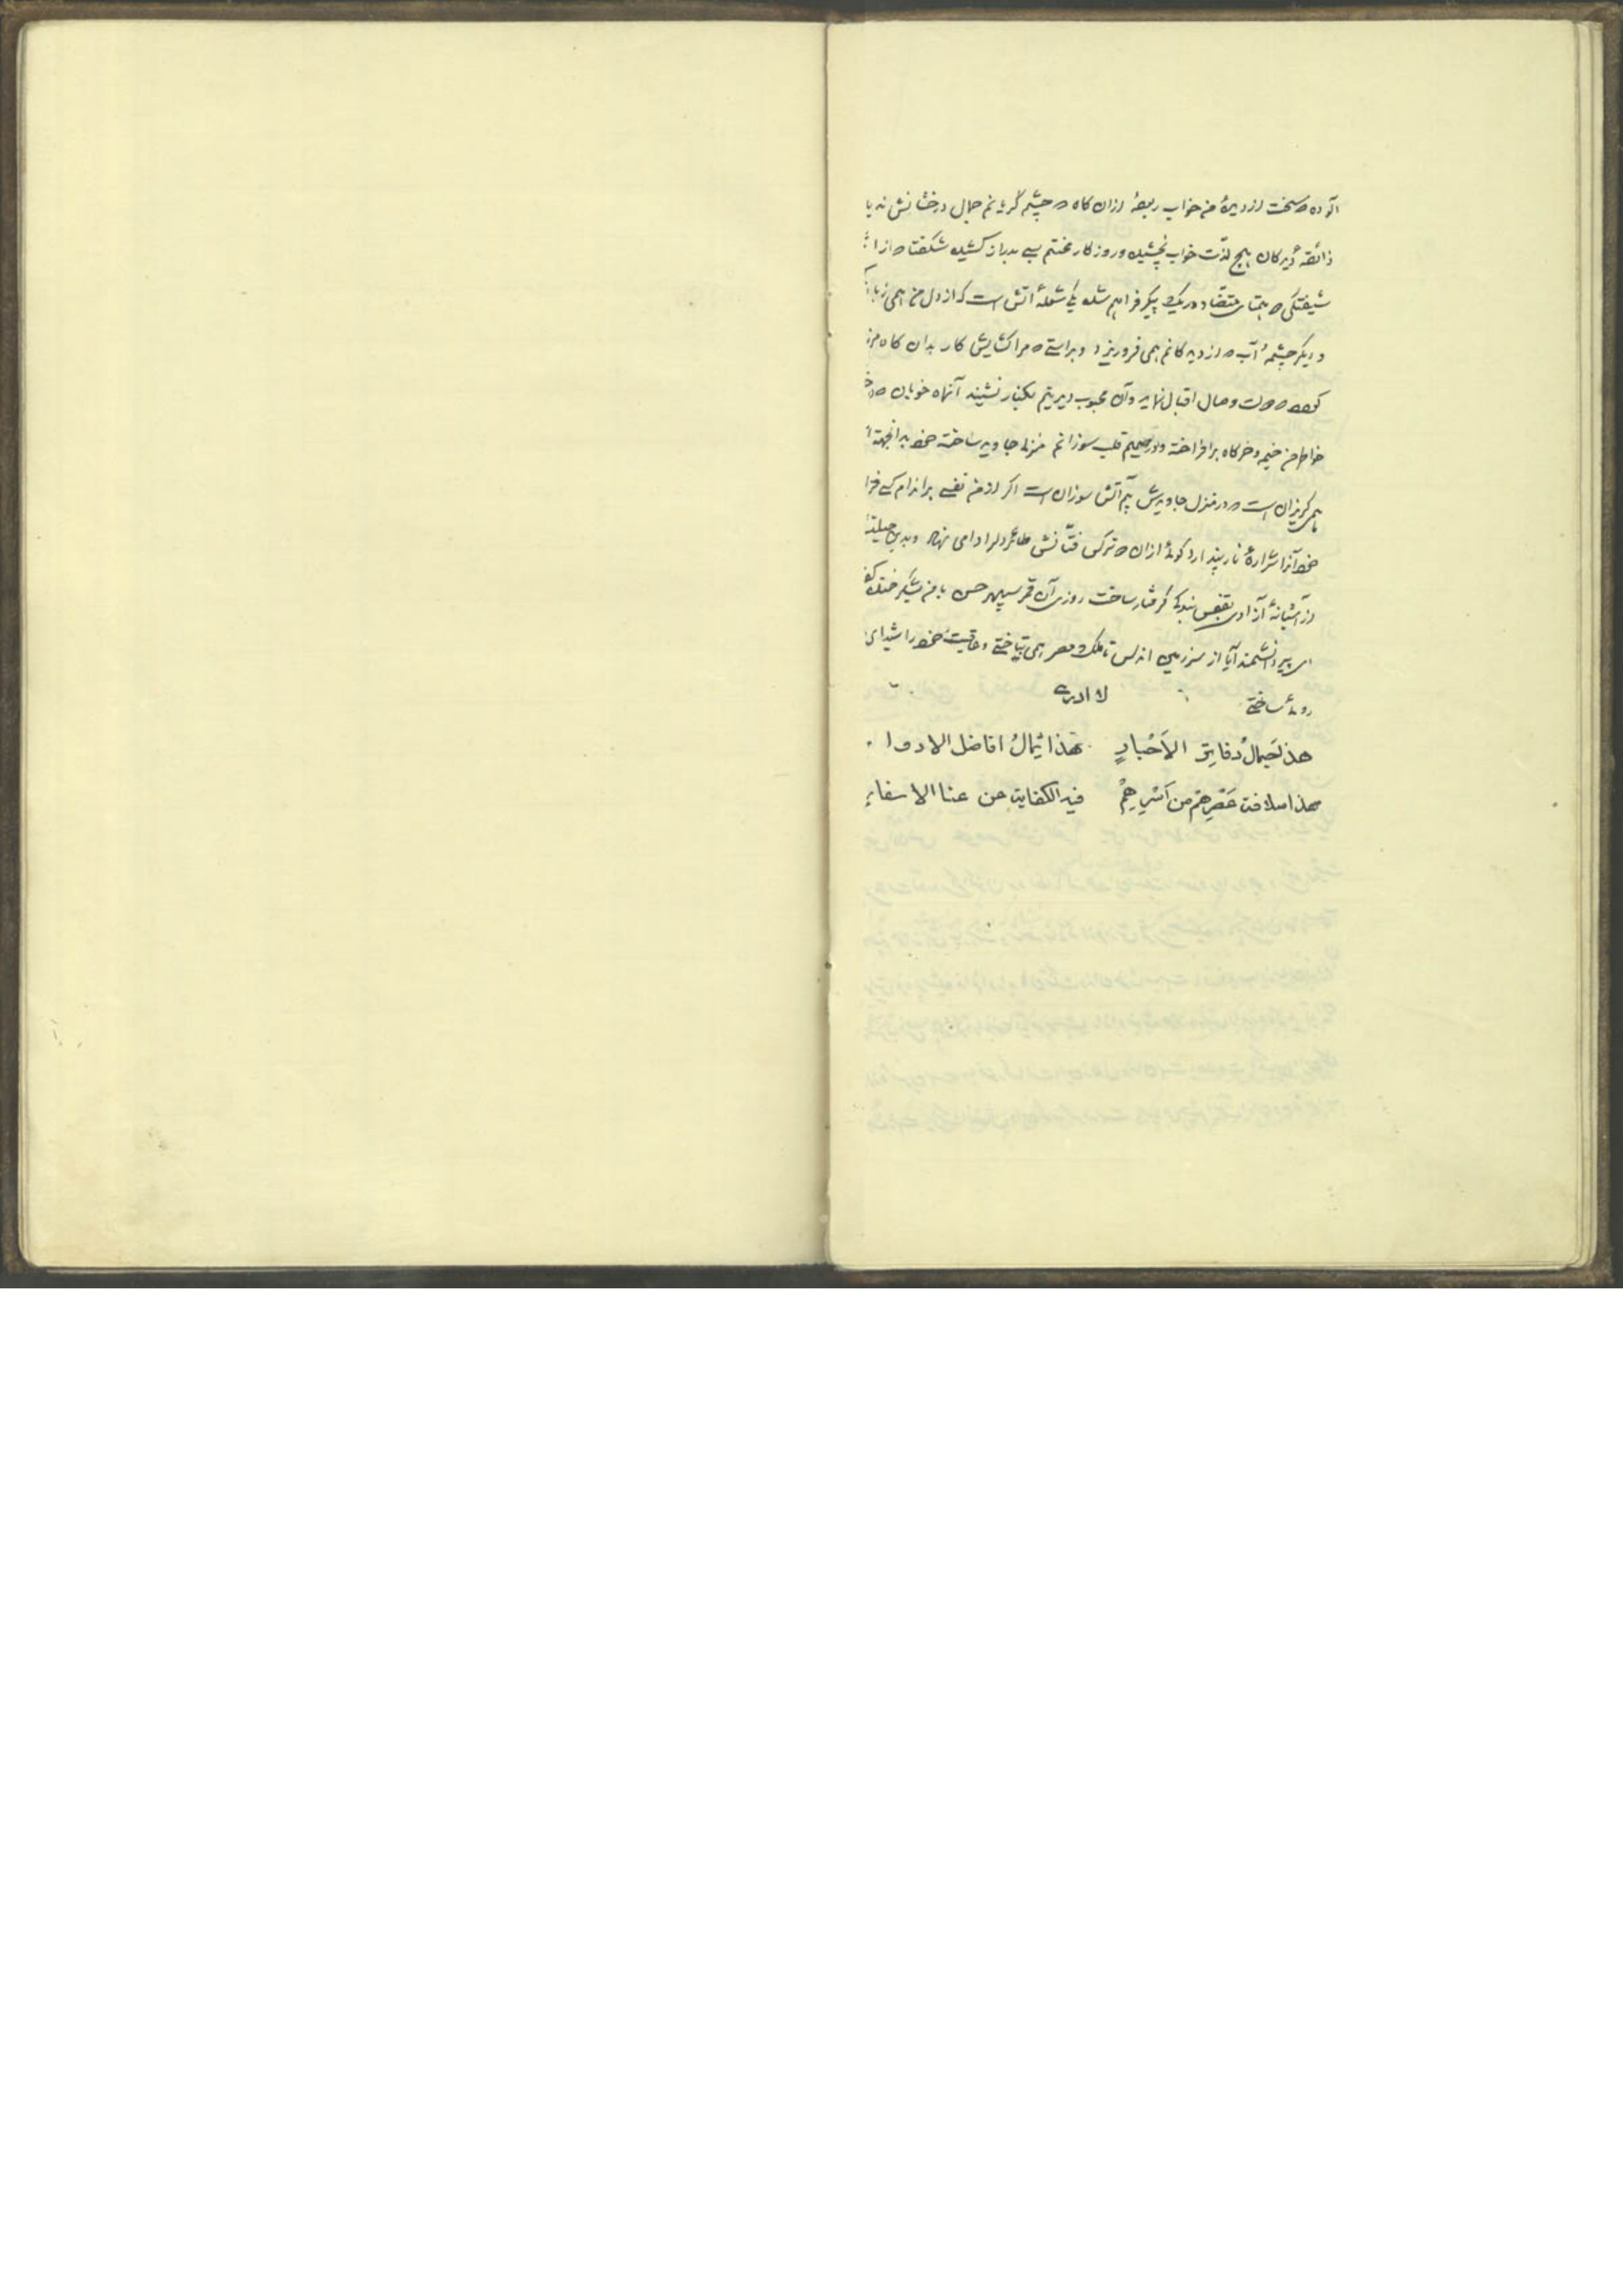 آلوده و سخت از دیدهٔ من خواب ربوده ازان کاه که چشم گریانم جمال درخشانش ندید
ذائقه دیدگان هیچ لذّت خواب نچشیده و روزگار محنتم بسی بدراز کشیده شگفتا که از
شیفتگی دو همتای متضاد در یک پیکر فراهم شده یکی شعلهٔ آتش است که از دل من همی زبانه
دیگر چشمهٔ آب که از دیدگانم همی فروریزد و براستی مرا گشایش کار بدان گاه
که دولت وصال اقبال نماید وآن محبوب دیرینم بکنار نشیند آنماه خوبان که در
خاطر من خیمه و خرگاه برافراخته و در صمیم قلب سوزانم منزل جاوید ساخته خود بدانجهت
همی گریزان است که در منزل جاویدش بیم آتش سوزان است اگر از من نفسی بر اندام کسی فرا
خود آنرا شرارهٔ نار پندارد گوئی ازان که نرگس فتّانش طائر دلرا دامی نهاد وبدین حیلت
از آشیانهٔ آزادی بقفس بندگی گرفتار ساخت روزی آن قمر سپهر حسن با من بشکرخنده گفت
ای پیر دانشمند آیا از سرزمین اندلس تا ملک مصر همی بتاختی و عاقبت خود را شیدای
روئی ساختی لا ادری
هذا جمالُ دفایق الاَخْبارِ هذا ثمالُ افاضل الادوا
هذا سلافت عَصْرِهم من اَسْرِهِمْ فیه الکفایت عن عنا الاسفارِ